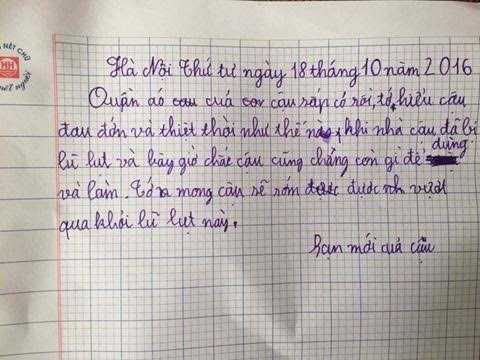 NÉT CHỮ
HH
NGƯỜI
Hà Nội Thứ tư ngày 18 tháng 10 năm 2016
Quần áo của cậu sắp có rồi, tớ hiểu cậu
đau đớn và thiệt thòi như thế nào, khi nhà cậu đã bị
lũ lụt và bây giờ chắc cậu cũng chẳng còn gì để dùng
và làm. Tớ mong cậu sẽ sớm được vượt
qua khỏi lũ lụt này.
bạn mới của cậu